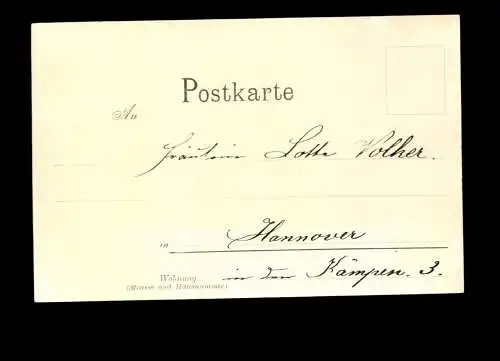 Postkarte
An
Fräulein Lotte Volker.
in Hannover
Wohnung in den Kämpen. 3.
(Strasse und Hausnummer)